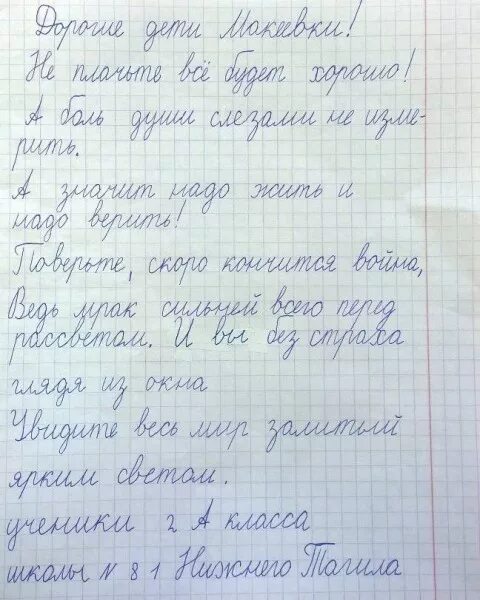 Дорогие дети Макеевки!
Не плачьте всё будет хорошо!
А боль души слезами не изме-
рить.
А значит надо жить и
надо верить!
Поверьте, скоро кончится война,
Ведь мрак сильней всего перед
рассветом. И вы без страха
глядя из окна
Увидите весь мир залитый
ярким светом.
ученики 2 А класса
школы № 81 Нижнего Тагила